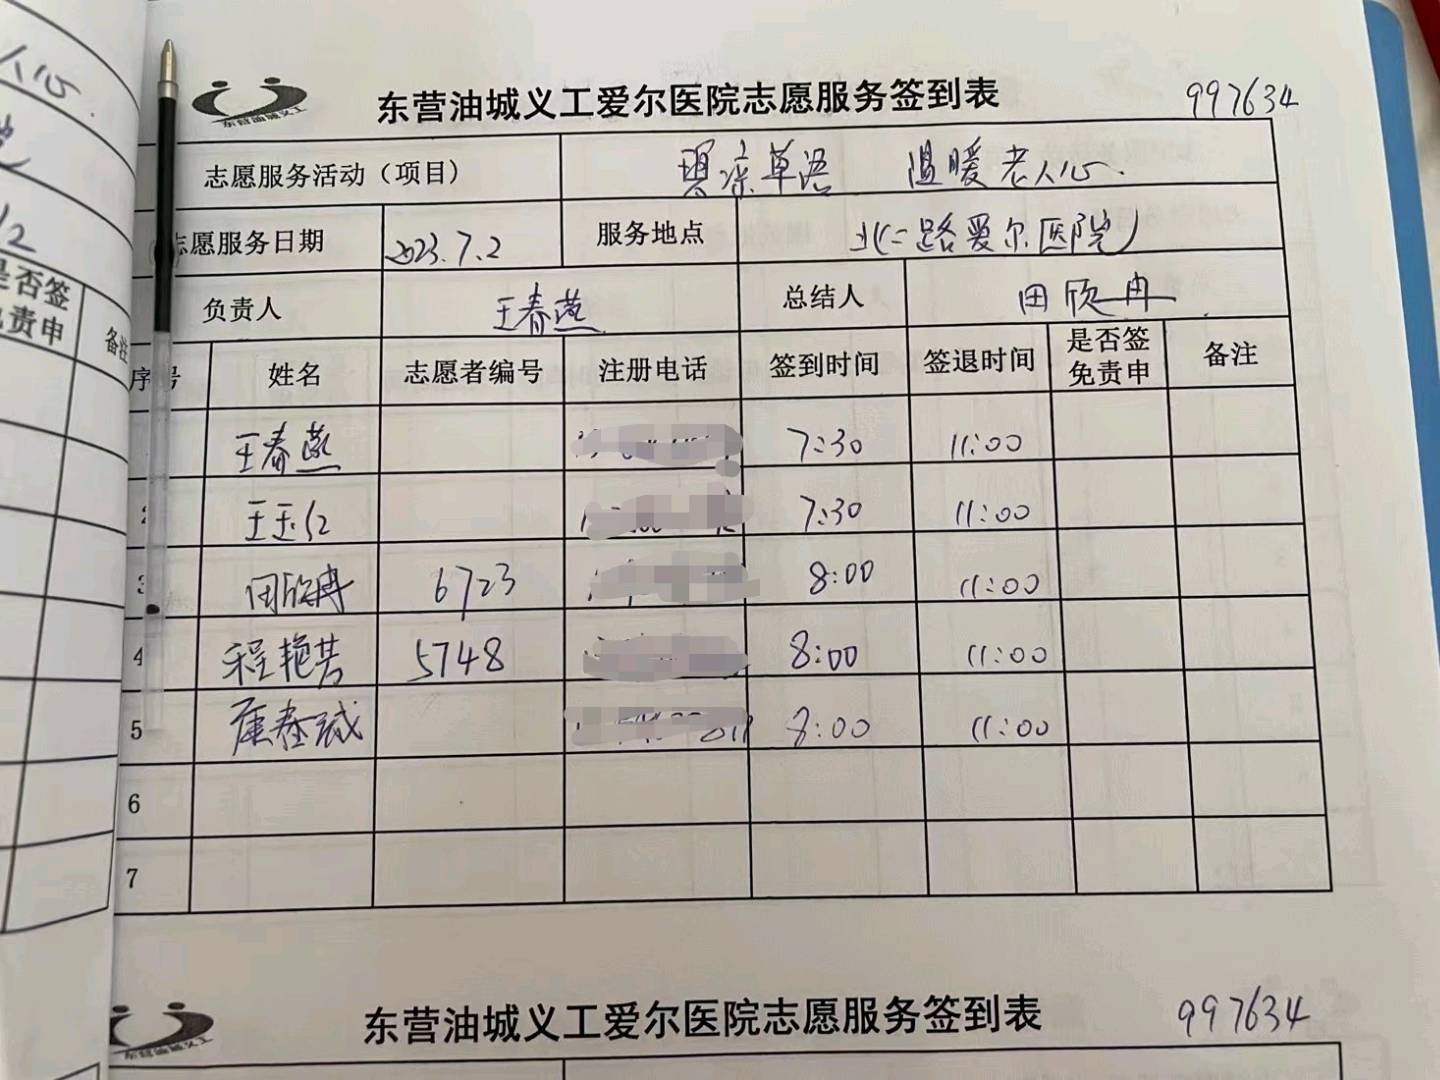 人心
12
是否签
免责申
备注
东营油城义工
东营油城义工爱尔医院志愿服务签到表 997634
志愿服务活动（项目） 温暖老人心
志愿服务日期 2023.7.2 服务地点 北二路爱尔医院
负责人 王春燕 总结人 田欣冉
序号 姓名 志愿者编号 注册电话 签到时间 签退时间 是否签免责申 备注
王春燕 7:30 11:00
2 王玉红 7:30 11:00
3 田欣冉 6723 8:00 11:00
4 程艳芳 5748 8:00 11:00
5 8:00 11:00
6
7
东营油城义工
东营油城义工爱尔医院志愿服务签到表 997634